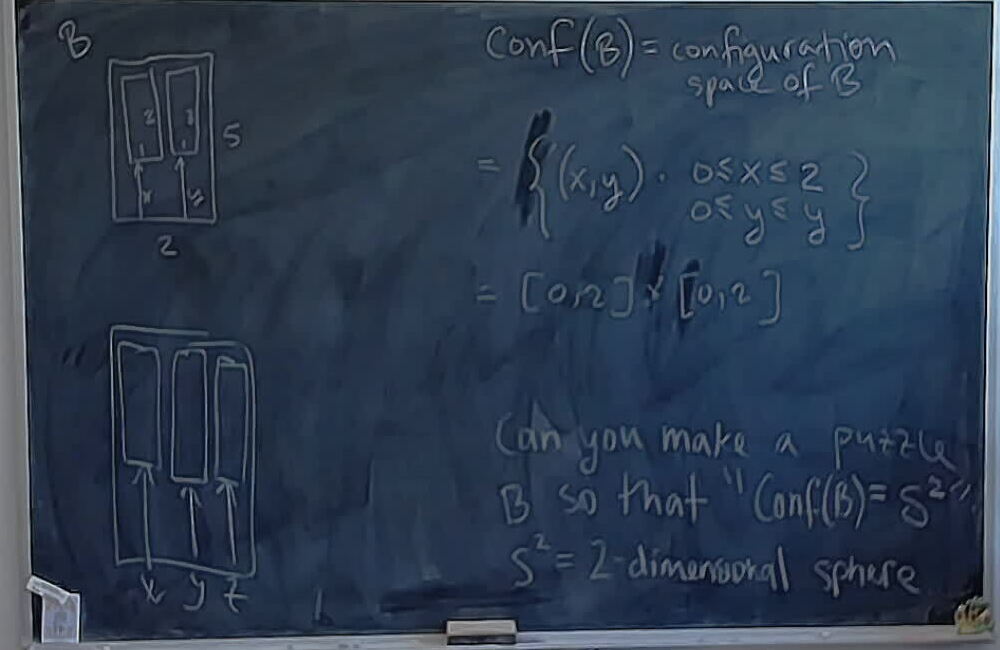 B
2
5
x
y
2
x y z
Conf(B) = configuration
space of B
= {(x,y) . 0≤x≤2
0≤y≤y}
= [0,2] x [0,2]
Can you make a puzzle
B so that "Conf(B) = S²"
S² = 2-dimensional sphere